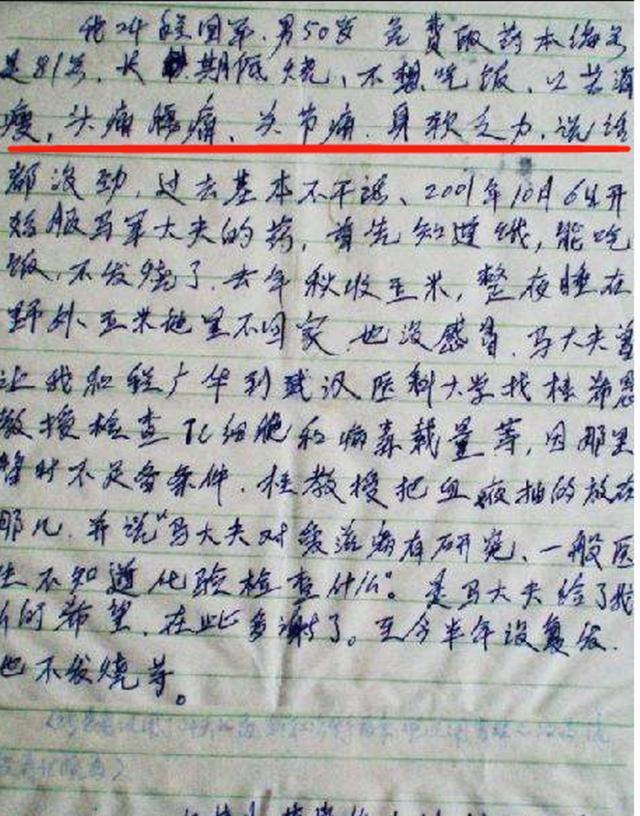 男50岁 免费取药本编号
是81号、长期低烧、不想吃饭、以前消
瘦,头痛腰痛、关节痛、身软乏力,说话
都没劲,过去基本不干活、2001年10月6日开
始服马军大夫的药,首先知道饿,能吃
饭,不发烧了.去年秋收玉米,整夜睡在
野外玉米地里不回家,也没感冒.马大夫曾
让我和程广华到武汉医科大学找桂希恩
教授检查T4细胞和病毒载量等,因那里
暂时不具备条件.桂教授把血液抽的放在
那儿.并说"马大夫对爱滋病有研究、一般医
生不知道化验检查什么"。是马大夫给了我
们的希望,在此多谢了。至今半年没复发.
也不发烧等。